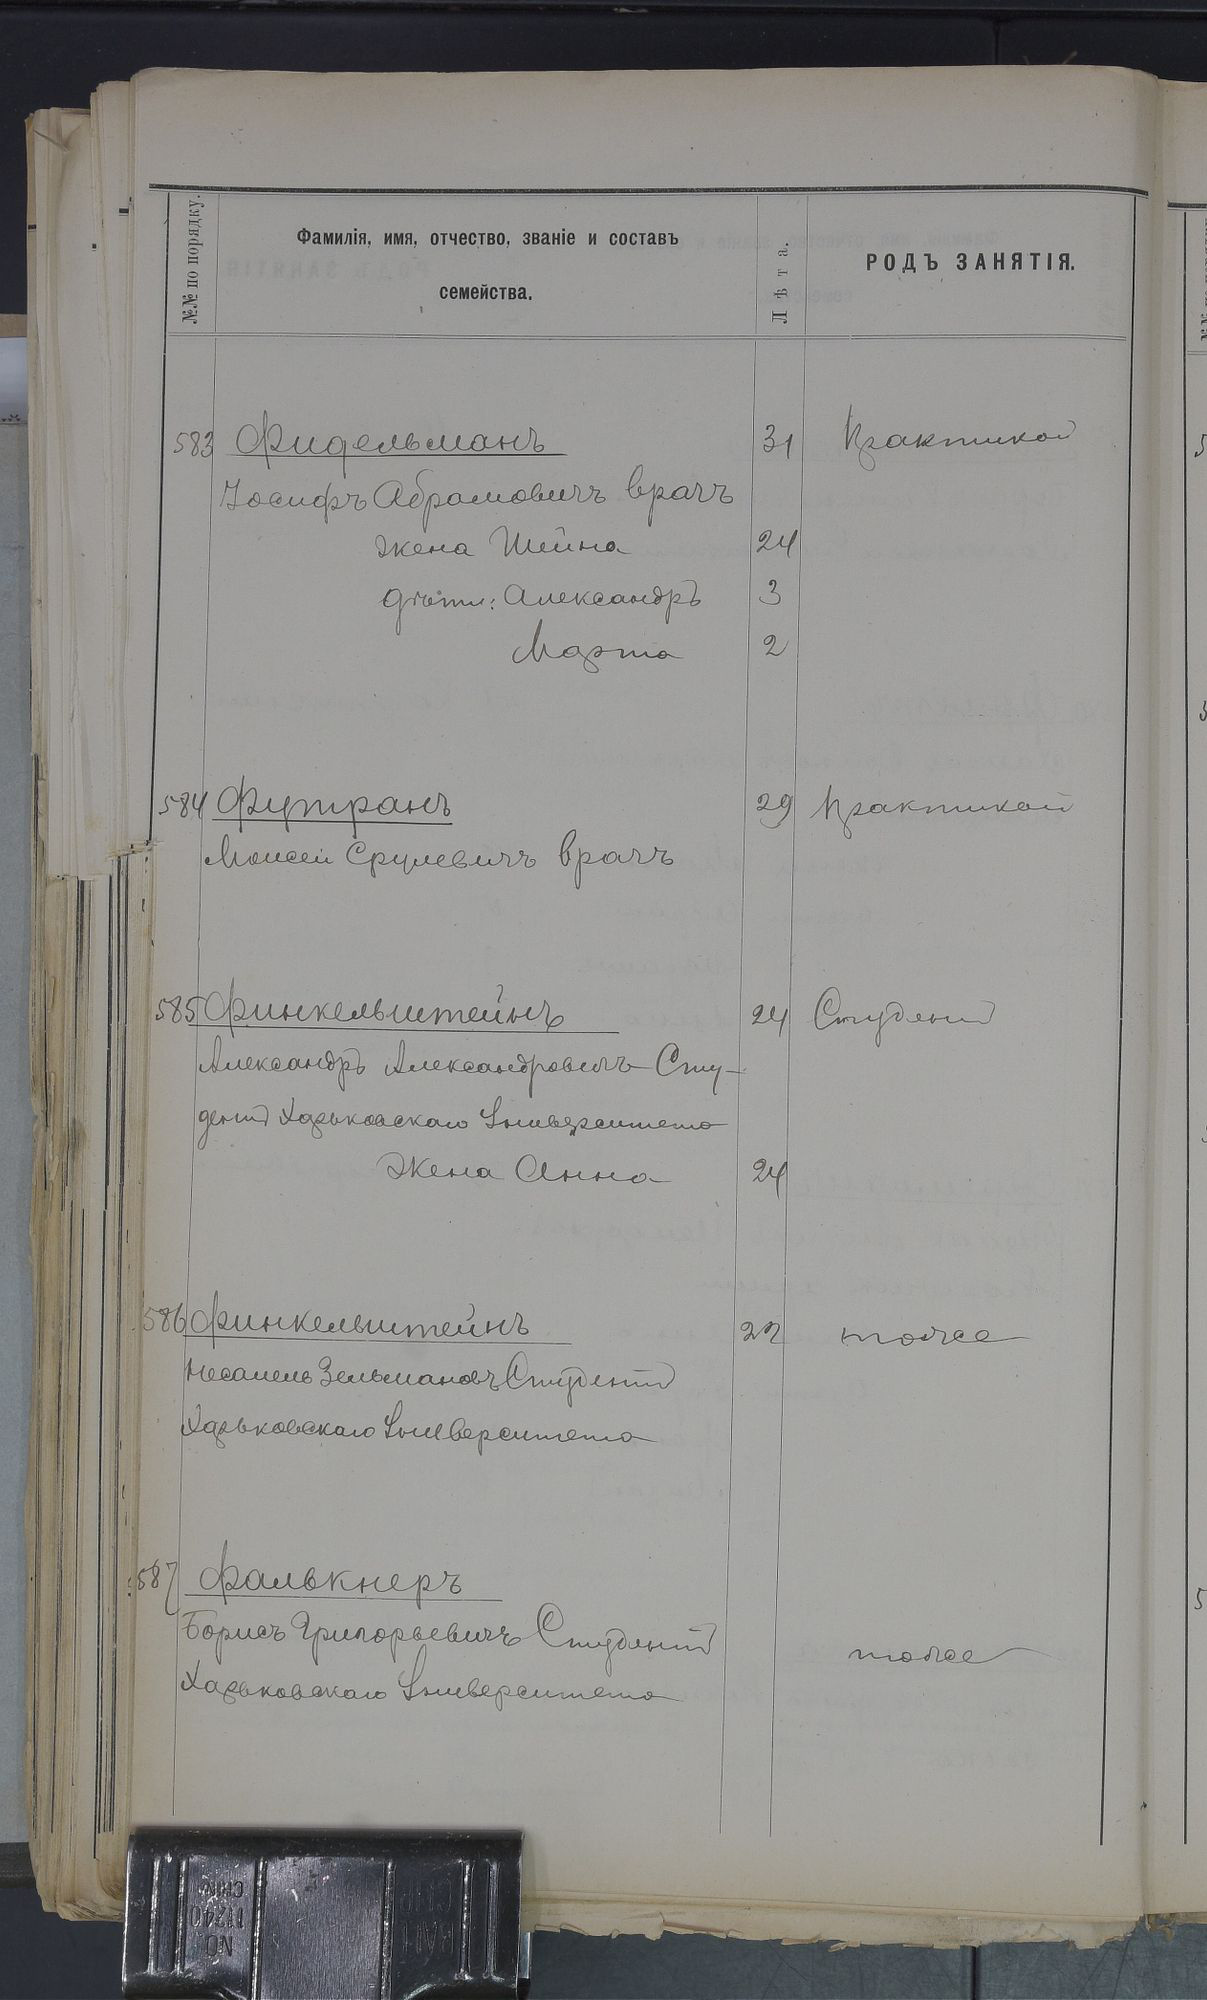 №№ по порядку.
Фамилія, имя, отчество, званіе и составъ
семейства.
Лѣта.
РОДЪ ЗАНЯТІЯ.
583 Фидельманъ 31 Практикой
Іосифъ Абрамовичъ врачъ
жена Шейна 24
дѣти: Александръ 3
Марта 2
584 Футранъ 29 Практикой
Моисей Срулевичъ врачъ
585 Финкельштейнъ 24 Студентъ
Александръ Александровичъ Сту-
дентъ Харьковскаго Университета
жена Анна 24
586 Финкельштейнъ 22 тоже
Зельмановъ Студентъ
Харьковскаго Университета
587 Фалькнеръ
Борисъ Григорьевичъ Студентъ
тоже
Харьковскаго Университета
NO.
11240
CHIN